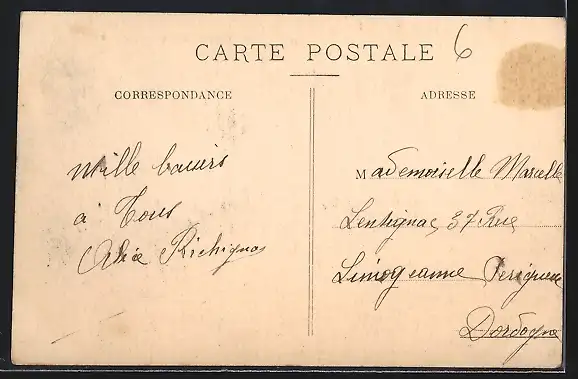 CARTE POSTALE 6
CORRESPONDANCE
ADRESSE
Mille baisers
à Tous
Richignac
Mademoiselle Marcelle
Lentignac, 37 Rue
Limogeanne Perigueux
Dordogne